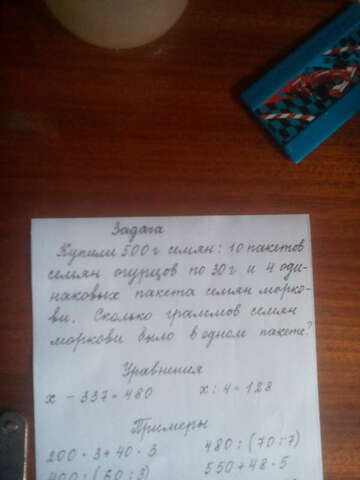 Задача
Купили 500г семян: 10 пакетов
семян огурцов по 30г и 4 оди-
наковых пакета семян морко-
ви. Сколько граммов семян
моркови было в одном пакете?
Уравнения
x - 337 = 480   x : 4 = 128
Примеры
200 · 3 + 40 · 3   480 : (70 : 7)
400 : (60 : 3)   550 + 48 · 5